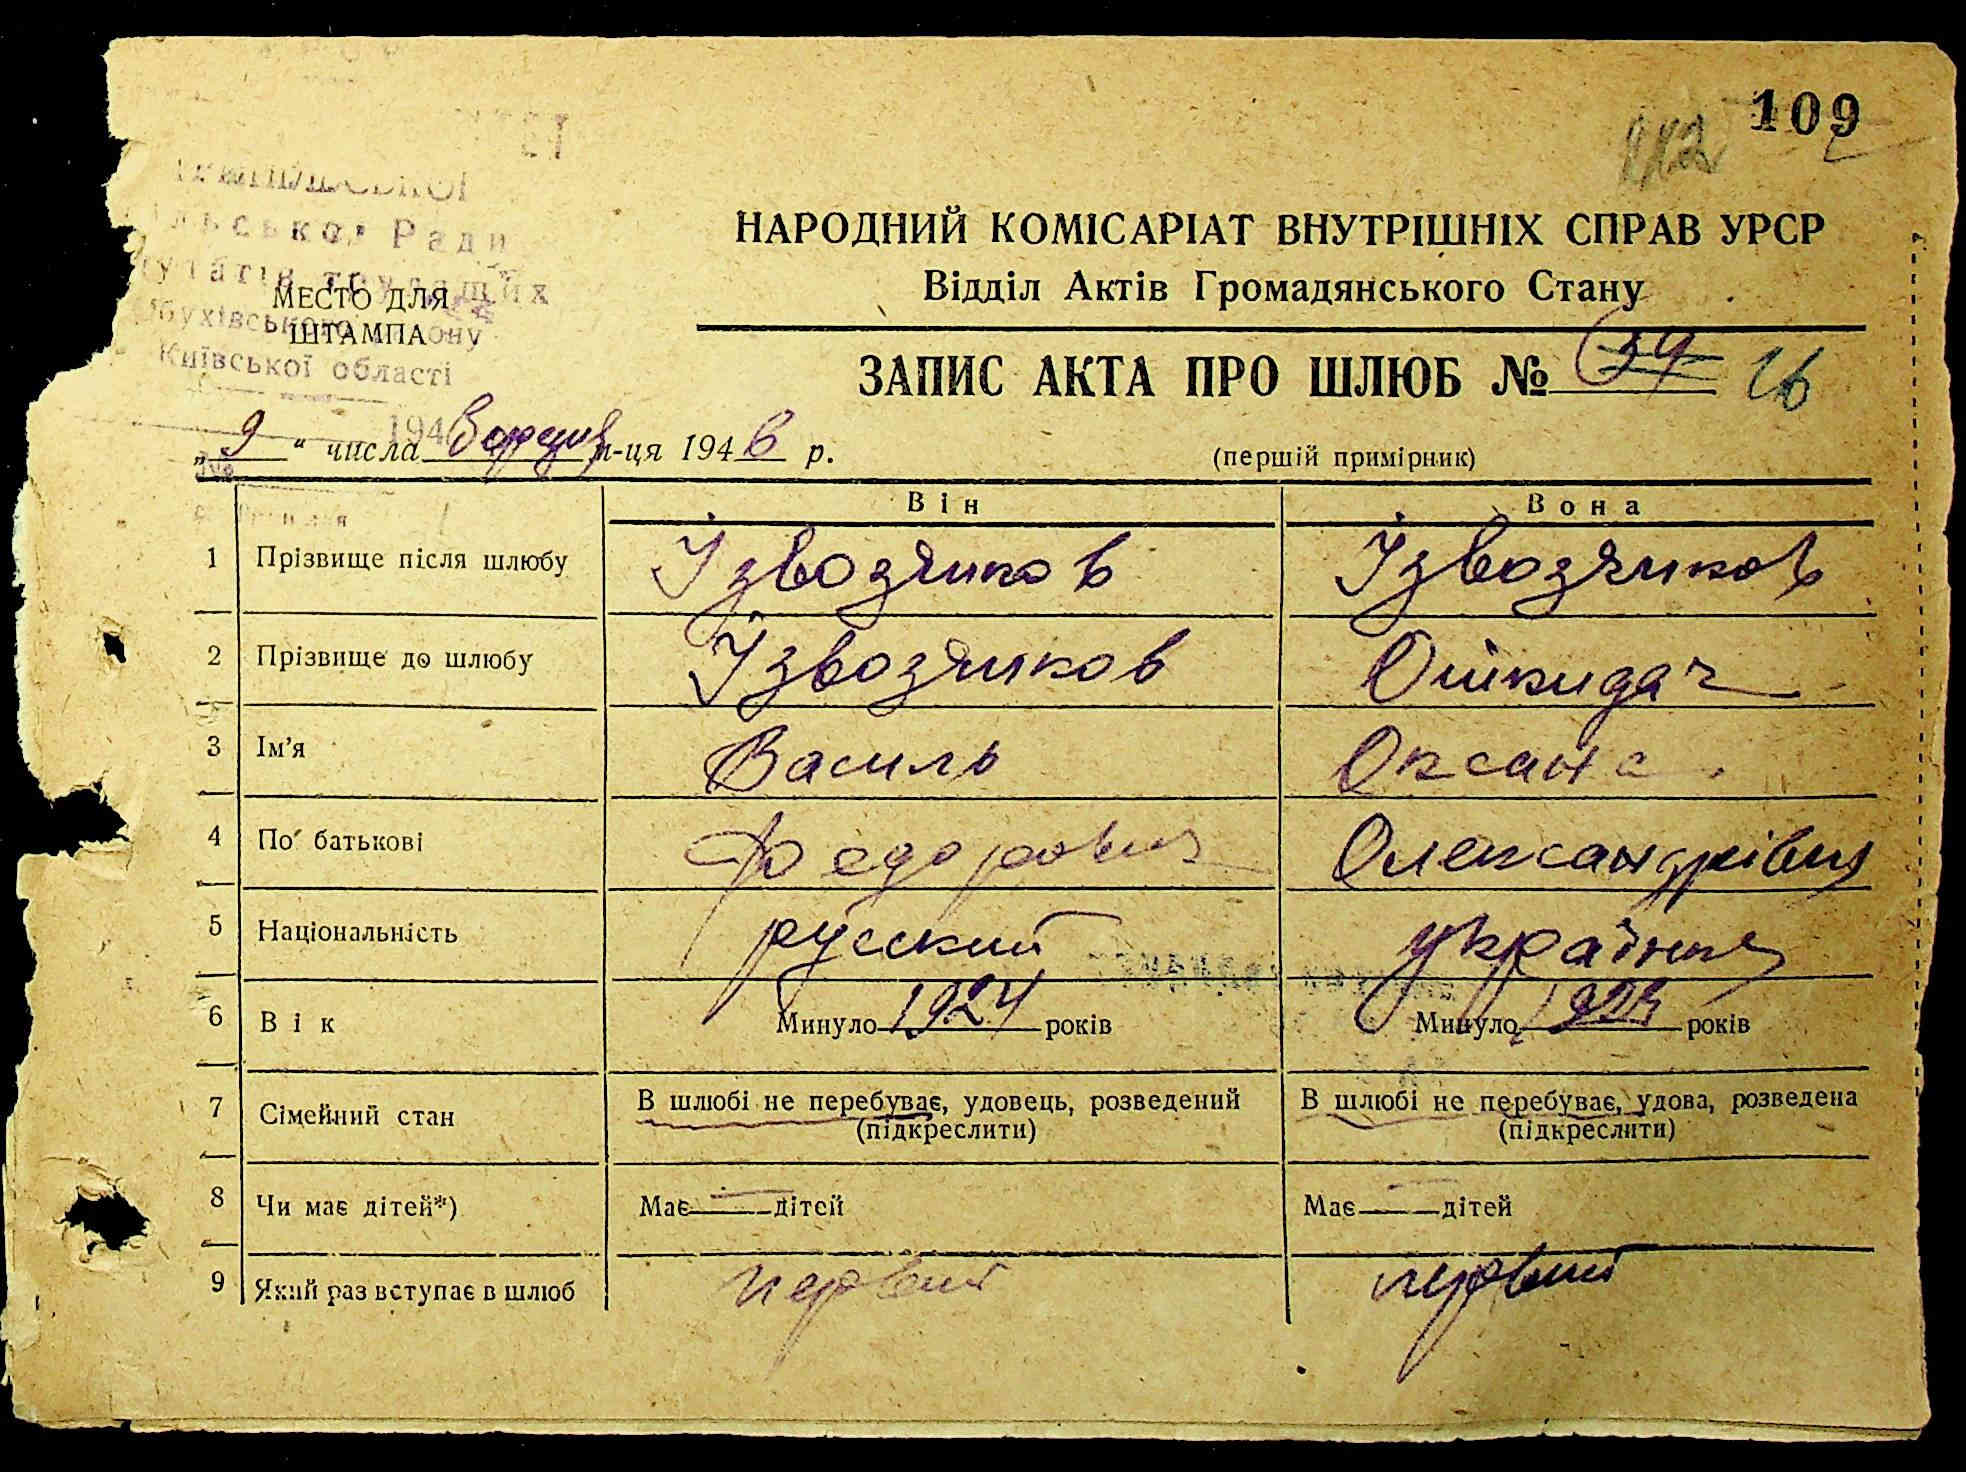 109
112
льської Ради
путатів трудящих
МЕСТО ДЛЯ
ШТАМПА
бухівського району
Київської області
НАРОДНИЙ КОМІСАРІАТ ВНУТРІШНІХ СПРАВ УРСР
Відділ Актів Громадянського Стану
ЗАПИС АКТА ПРО ШЛЮБ № 39 26
„9“ числа м-ця 1946 р.
(першій примірник)
Він Вона
1 Прізвище після шлюбу Ізвозчиков Ізвозчиков
2 Прізвище до шлюбу Ізвозчиков
3 Ім'я Василь Оксана
4 По батькові Федорович Олександрівна
5 Національність русский українка
6 Вік Минуло 1924 років Минуло 1923 років
7 Сімейний стан В шлюбі не перебуває, удовець, розведений В шлюбі не перебуває, удова, розведена
(підкреслити) (підкреслити)
8 Чи має дітей*) Має — дітей Має — дітей
9 Який раз вступає в шлюб первий первий